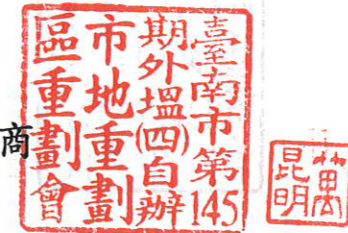 臺南市第145
期外塭(四)自辦
市地重劃
區重劃會
商
萬
昆明